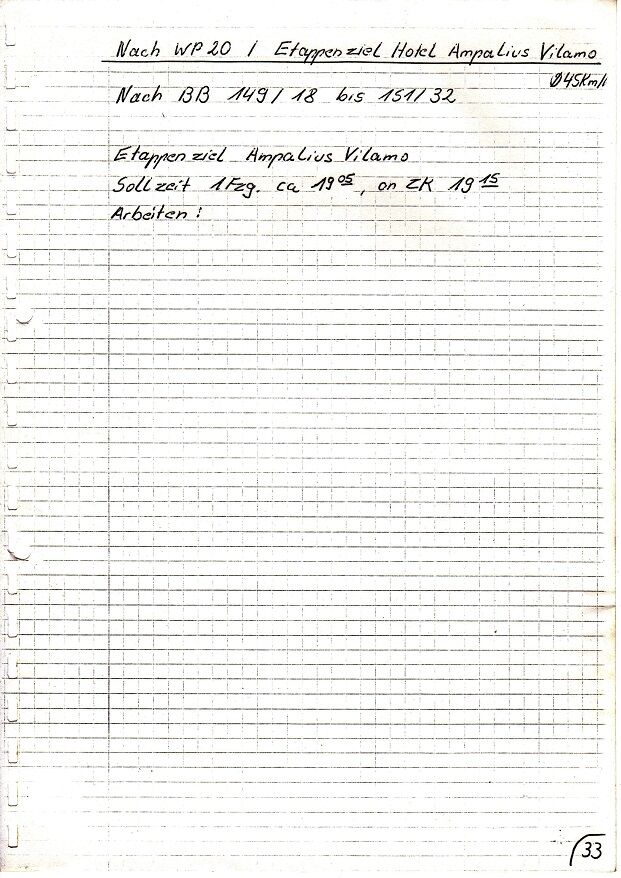 Nach WP 20 / Etappenziel Hotel Ampalius Vilamo
Ø 45 Km/h
Nach BB 149/18 bis 151/32
Etappenziel Ampalius Vilamo
Sollzeit 1 Fzg. ca 19 05, an ZK 19 15
Arbeiten :
33